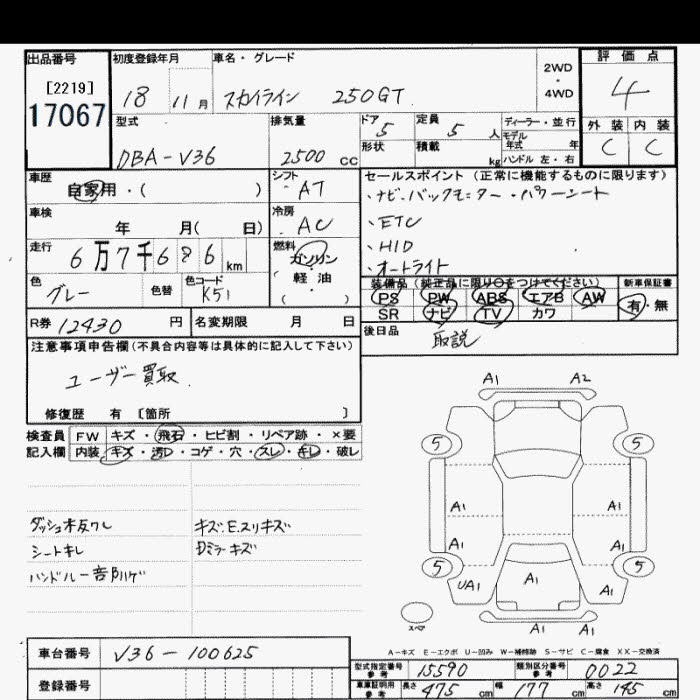 出品番号 初度登録年月 車名・グレード 2WD・4WD 評価点
[2219] 17067 18 11月 スカイライン 250GT 4
型式 排気量 ドア 定員 ディーラー・並行 外装 内装
DBA-V36 2500cc 5 5人 モデル年式 年 C C
形状 積載 kg ハンドル 左・右
車歴 シフト セールスポイント (正常に機能するものに限ります)
自家用・( ) AT ・ナビ・バックモニター・パワーシート
車検 冷房 ・ETC
年 月( 日) AC ・HID
走行 燃料 ・オートライト
6万7千686km ガソリン・軽油・( )
色 色替 色コード 装備品 (純正品に限り〇をつけてください) 新車保証書
グレー K51 PS PW ABS エアB AW 有・無
SR ナビ TV カワ
R券 12430円 名変期限 月 日 後日品 取説
注意事項申告欄(不具合内容等は具体的に記入して下さい)
ユーザー買取
修復歴 有 〔箇所 〕
検査員 FW キズ・飛石・ヒビ割・リペア跡・×要
記入欄 内装 キズ・汚れ・コゲ・穴・スレ・キレ・破レ
A1 A2
5 5
A1 A1
A1 A1
5 5
UA1 A1 A1
A1 A1
スペア
キズ.E.スリキズ
シートキレ Dミラーキズ
A-キズ E-エクボ U-凹み W-補修跡 S-サビ C-腐食 XX-交換済
車台番号 V36-100625
登録番号
型式指定番号 参考 15590 類別区分番号 参考 0022
車庫証明用 参考 長さ 475cm 幅 177cm 高さ 145cm